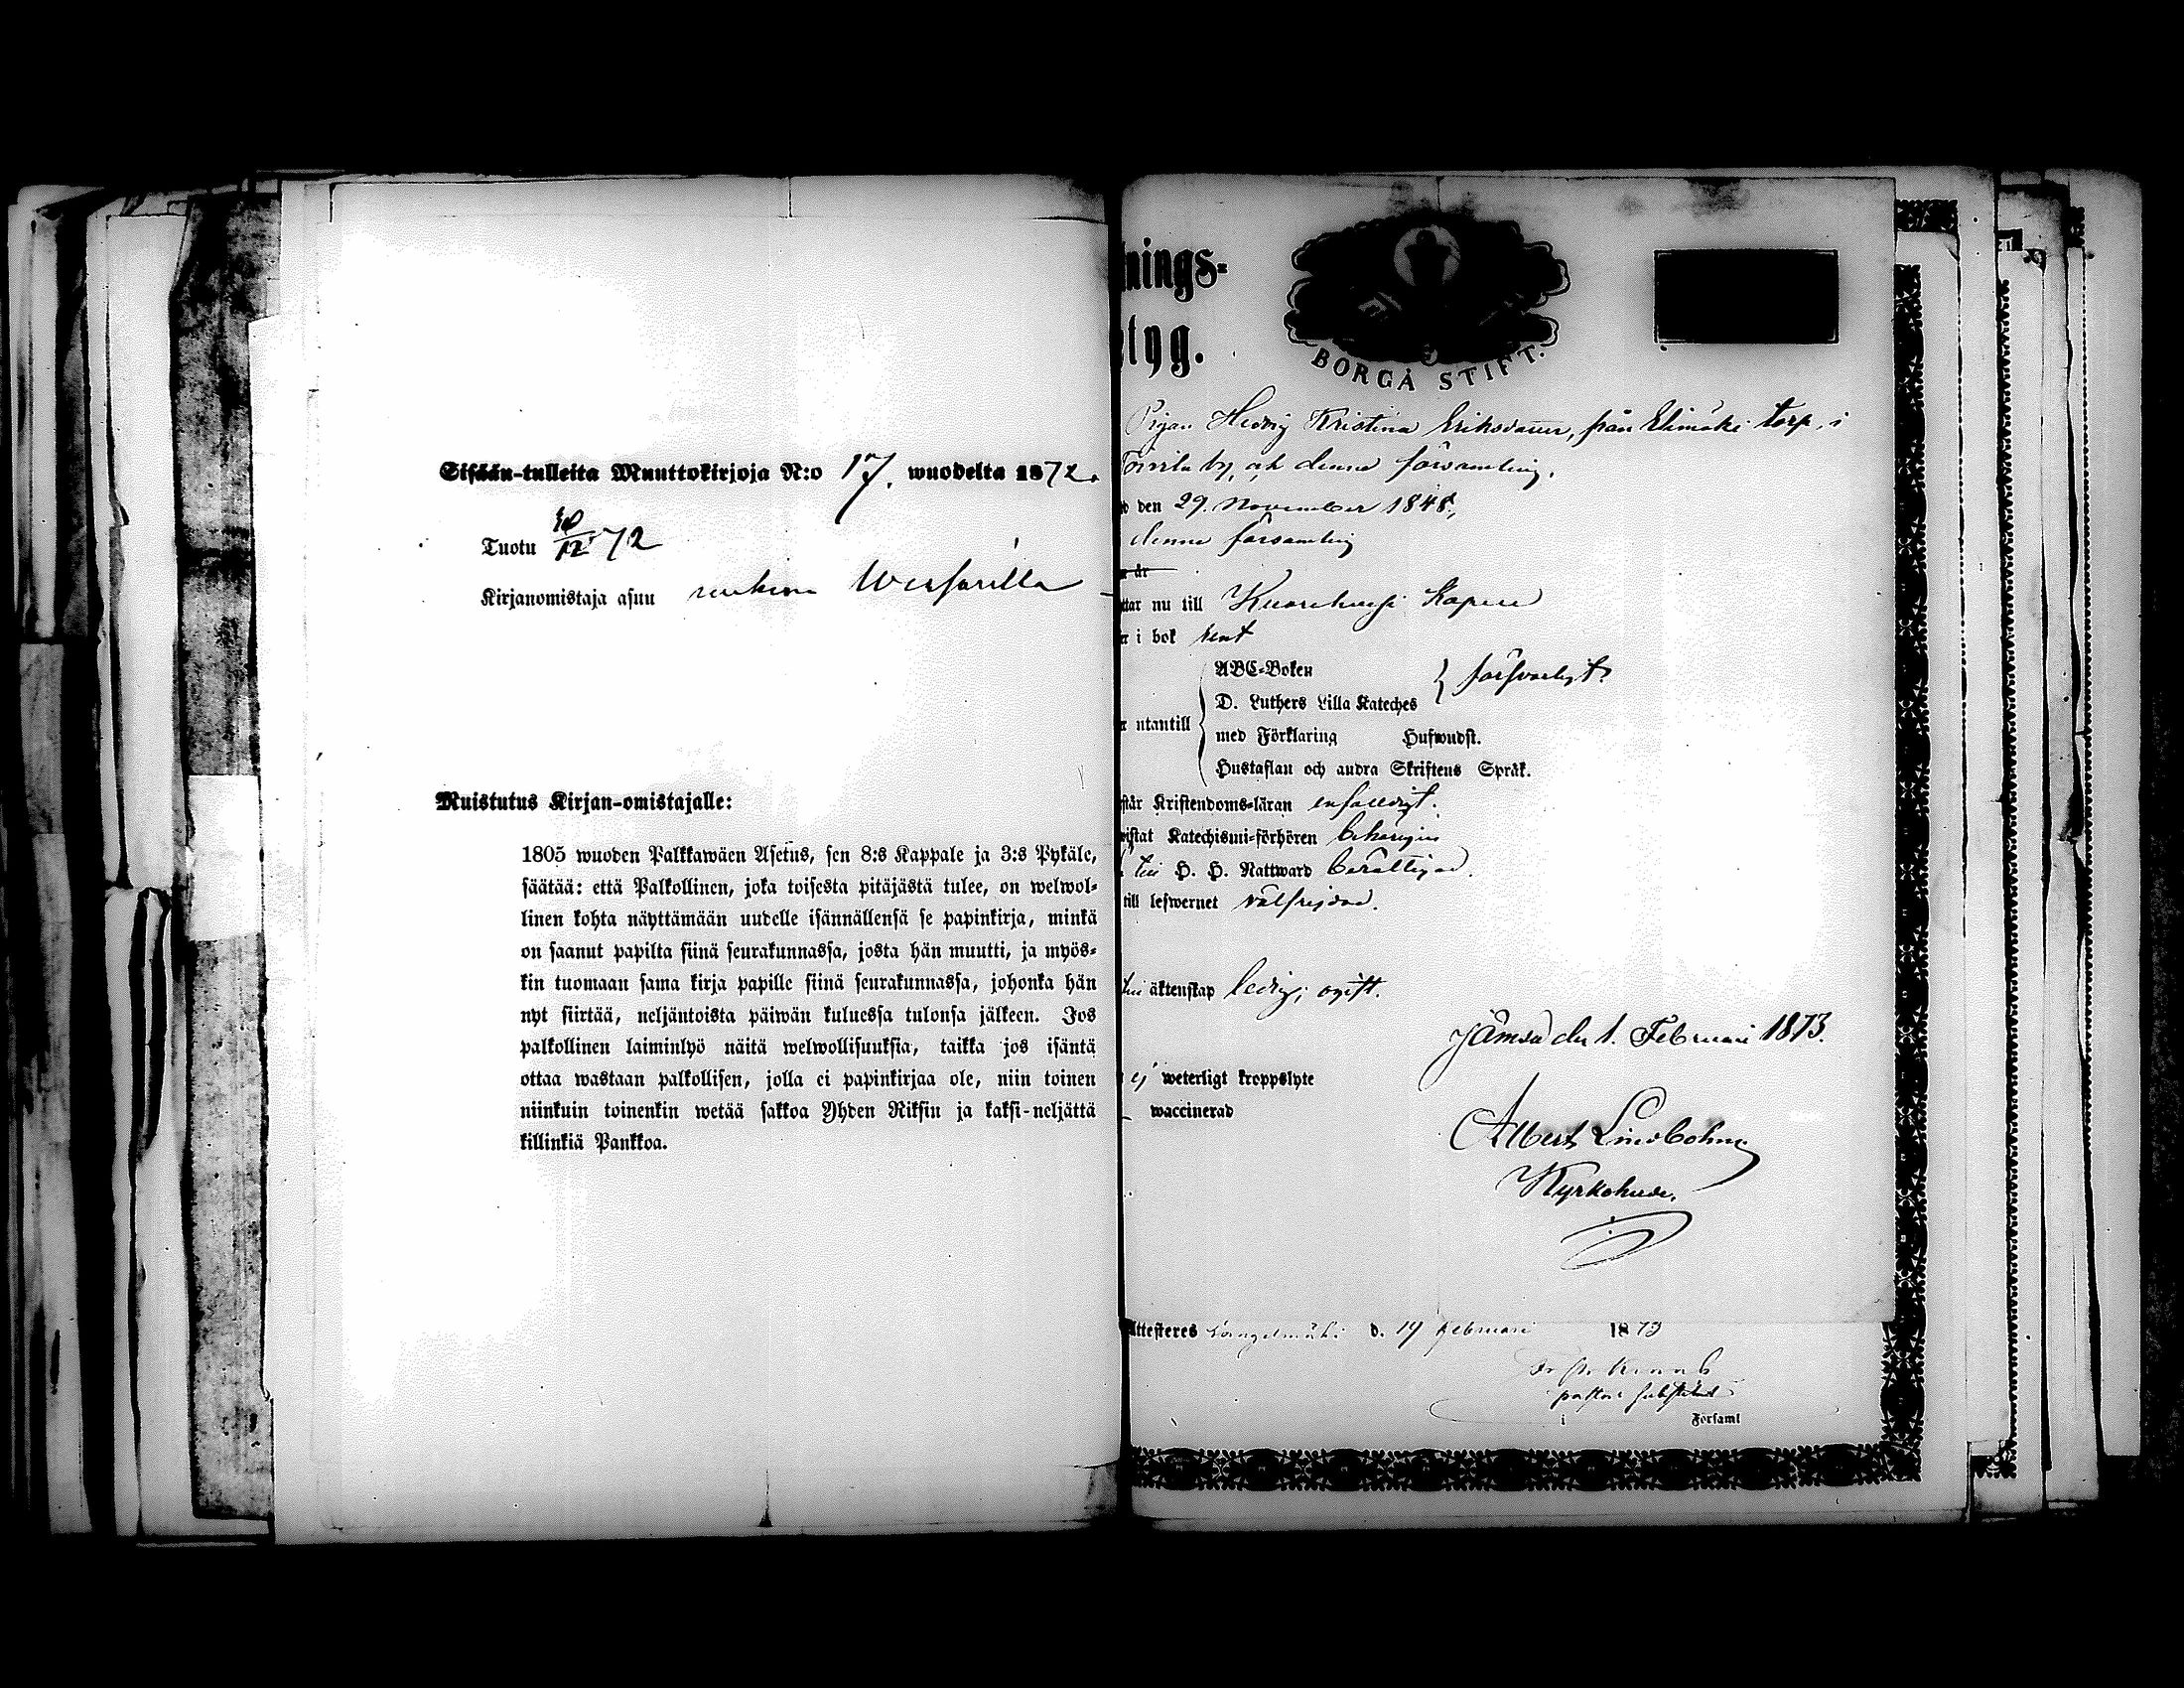 Sisään-tulleita Muuttokirjoja N:o 17. wuodelta 1872.
Tuotu 10/12 72
Kirjanomistaja asuu
Muistutus Kirjan-omistajalle:
1805 wuoden Palkkawäen Asetus, sen 8:s Kappale ja 3:s Pykäle,
säätää: että Palkollinen, joka toisesta pitäjästä tulee, on welwol-
linen kohta näyttämään uudelle isännällensä se papinkirja, minkä
on saanut papilta siinä seurakunnassa, josta hän muutti, ja myös-
kin tuomaan sama kirja papille siinä seurakunnassa, johonka hän
nyt siirtää, neljäntoista päiwän kuluessa tulonsa jälkeen. Jos
palkollinen laiminlyö näitä welwollisuuksia, taikka jos isäntä
ottaa wastaan palkollisen, jolla ei papinkirjaa ole, niin toinen
niinkuin toinenkin wetää sakkoa Yhden Riksin ja kaksi-neljättä
killinkiä Pankkoa.
nings-
tyg.
BORGÅ STIFT.
Pigan Hedvig Kristina Eriksdotter, från Elimäki torp, i
by, ah denna församling.
den 29. November 1848,
denna församling
år
ttar nu till Kuorehvesi Kapell
i bok rent
ABC-Boken
D. Luthers Lilla Kateches } försvarligt.
utantill
med Förklaring Hufwudst.
Hustaflan och andra Skriftens Språk.
står Kristendoms-läran enfaldigt.
wistat Katechismi-förhören behörigen
till H. H. Nattward berättigad.
till lefwernet välfrejdad.
till äktenskap ledig; ogift.
Jämsä den 1. Februari 1873.
ej weterligt kroppslyte
waccinerad
Albert Lindbohm
Kyrkoherde.
Attesteres Längelmäki d. 19 februari 1873
pastors substitut
i Församl